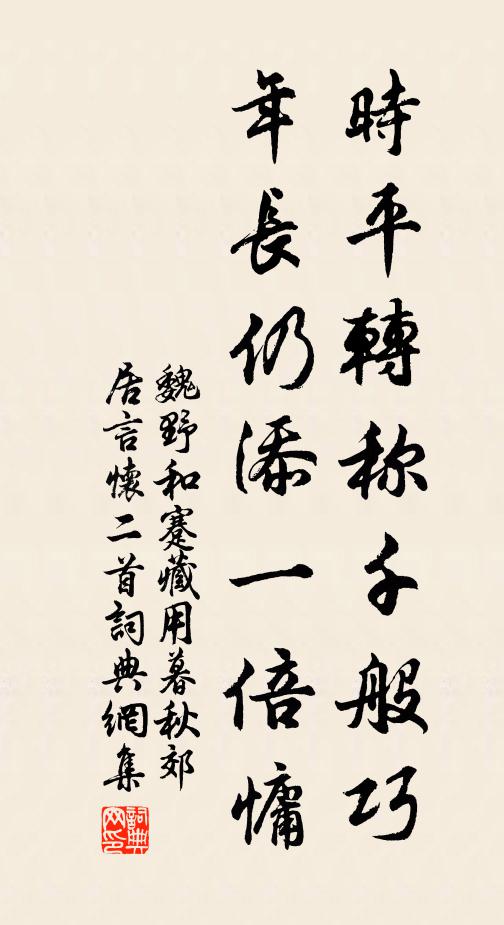 時平轉称千般巧
年長仍添一倍慵
魏野和蹇藏用暮秋郊
居言懷二首詞典網集
詞典
网印